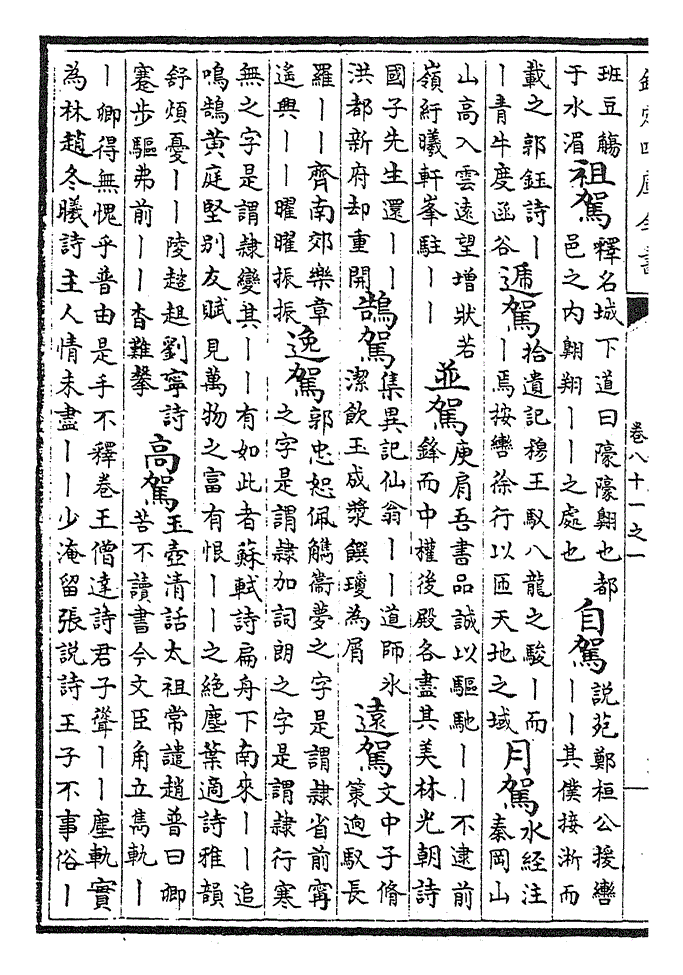 欽定四庫全書
卷八十一之一
班豆觴
于水湄
祖駕
釋名城下道曰㙱㙱翺也都
邑之内翺翔丨丨之處也
自駕
説苑鄭桓公援轡
丨丨其僕接淅而
載之郭鈺詩丨
丨青牛度函谷
遞駕
拾遺記穆王馭八龍之駿丨而
丨焉按轡徐行以匝天地之域
月駕
水經注
秦岡山
山高入雲遠望增狀若
嶺紆曦軒峯駐丨丨
並駕
庾肩吾書品誠以驅馳丨丨不逮前
鋒而中權後殿各盡其美林光朝詩
國子先生還丨丨
洪都新府却重開
鵠駕
集異記仙翁丨丨道師氷
潔飲玉成漿饌瓊為屑
遠駕
文中子脩
策逈馭長
羅丨丨齊南郊樂章
遙興丨丨曜曜振振
逸駕
郭忠恕佩觿衞夢之字是謂隸省前寧
之字是謂隸加詞朗之字是謂隸行寒
無之字是謂隸變其丨丨有如此者蘇軾詩扁舟下南來丨丨追
鳴鵠黄庭堅别友賦見萬物之富有恨丨丨之絶塵葉適詩雅韻
舒煩憂丨丨陵趑趄劉寧詩
蹇步驅弗前丨丨杳難攀
高駕
玉壺清話太祖常譴趙普曰卿
苦不讀書今文臣角立雋軌丨
丨卿得無愧乎普由是手不釋卷王僧達詩君子聳丨丨塵軌實
為林趙冬曦詩主人情未盡丨丨少淹留張説詩王子不事俗丨